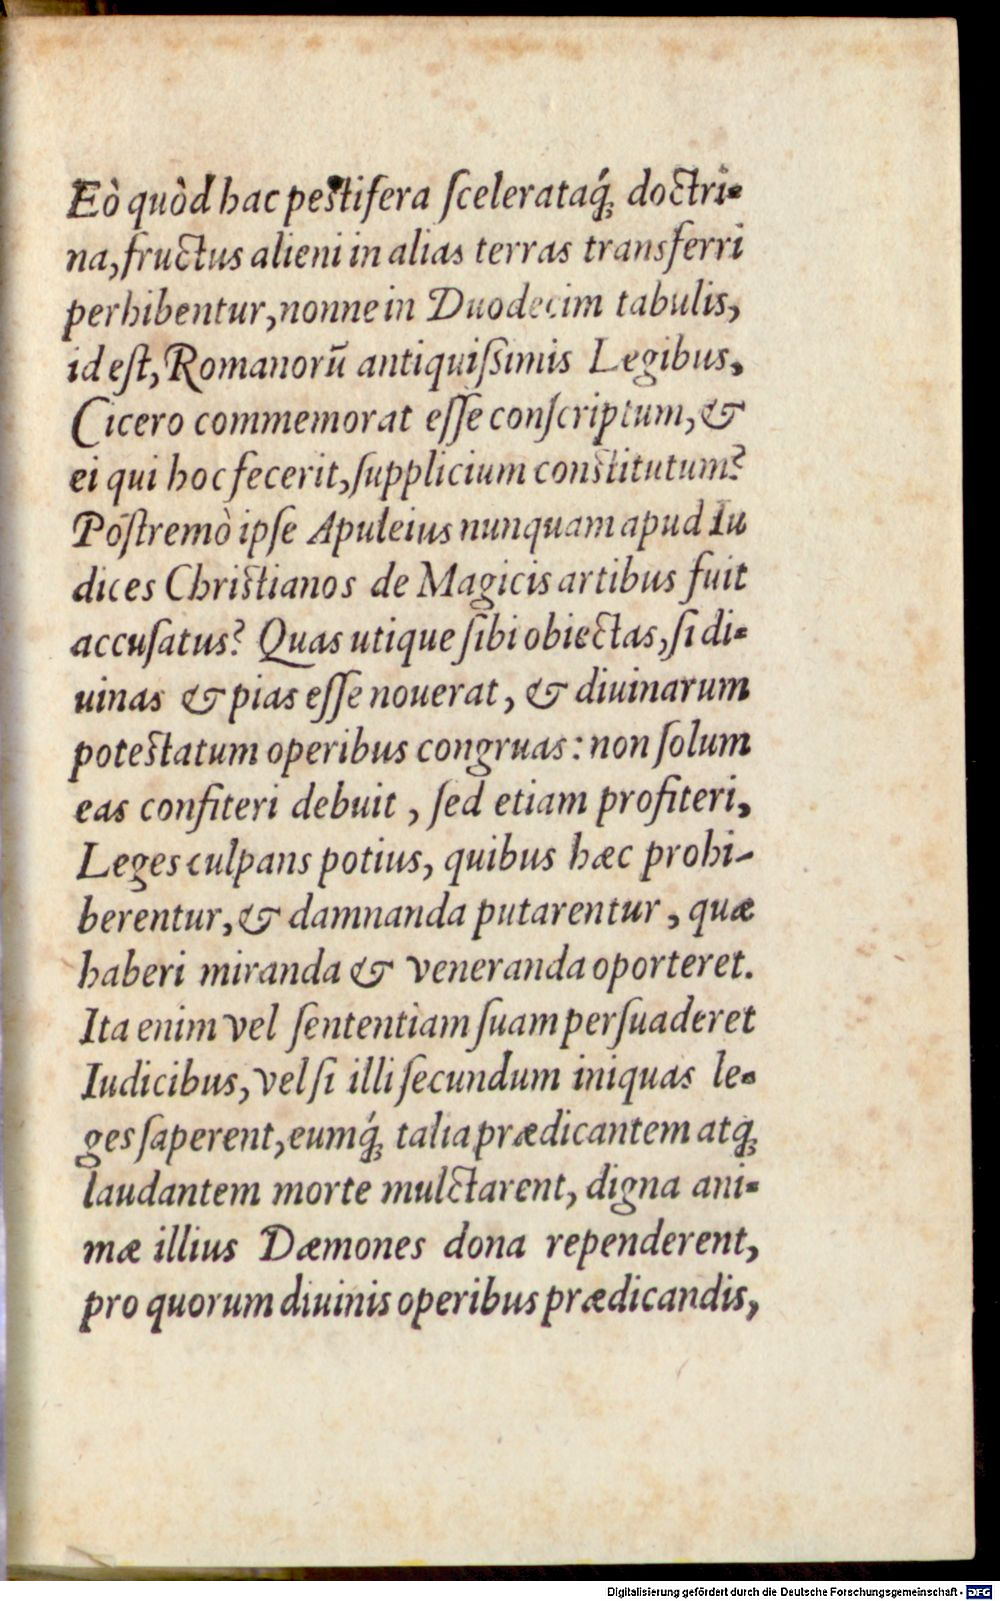 Eò quòd hac pestifera ſcelerataq́; doctri-
na, fructus alieni in alias terras transferri
perhibentur, nonne in Duodecim tabulis,
id eſt, Romanorū antiquiſsimis Legibus,
Cicero commemorat eſſe conſcriptum, &
ei qui hoc fecerit, ſupplicium constitutum?
Poſtremò ipſe Apuleius nunquam apud Iu
dices Christianos de Magicis artibus fuit
accuſatus? Quas utique ſibi obiectas, ſi di-
uinas & pias eſſe nouerat, & diuinarum
potestatum operibus congruas: non ſolum
eas confiteri debuit, ſed etiam profiteri,
Leges culpans potius, quibus hæc prohi-
berentur, & damnanda putarentur, quæ
haberi miranda & veneranda oporteret.
Ita enim vel ſententiam ſuam perſuaderet
Iudicibus, vel ſi illi ſecundum iniquas le-
ges ſaperent, eumq́; talia prædicantem atq;
laudantem morte mulctarent, digna ani-
mæ illius Dæmones dona rependerent,
pro quorum diuinis operibus prædicandis,
Digitalisierung gefördert durch die Deutsche Forschungsgemeinschaft - DFG